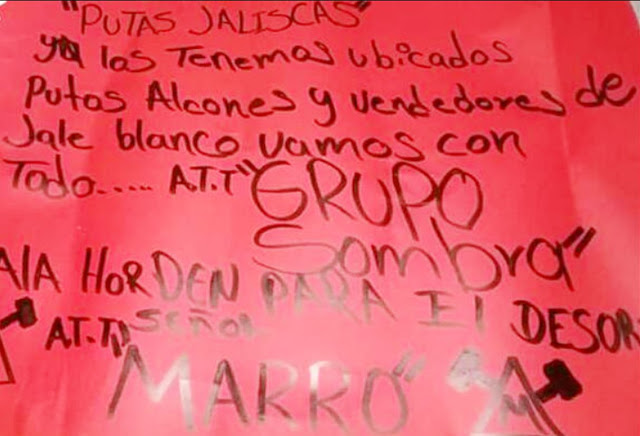 "PUTAS JALISCAS"
ya los Tenemos ubicados
Putos Alcones y vendedores de
Jale blanco vamos con
Todo..... A.T.T "GRUPO
Sombra"
A/A HORDEN PARA El DESOR
A.T.T. SEÑOR
"MARRO"
M